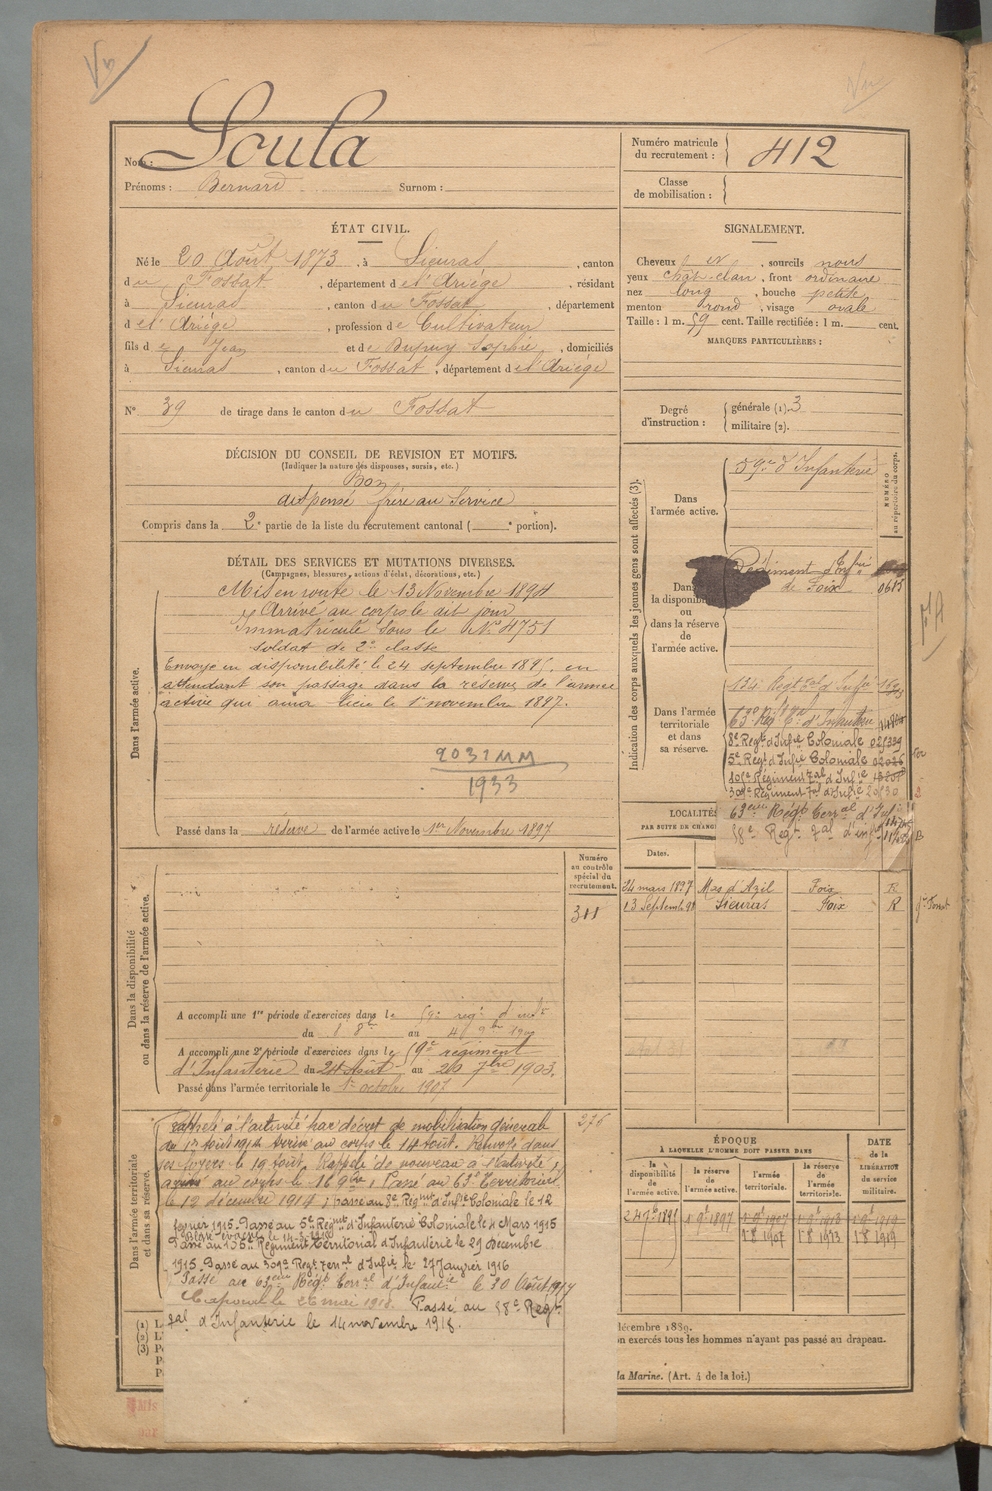 Vu
Nom : Soula
Prénoms : Bernard Surnom :
Numéro matricule du recrutement : 412
Classe de mobilisation :
ÉTAT CIVIL.
Né le 20 Août 1873, à Sieuras, canton
du Fossat, département de l'Ariège, résidant
à Sieuras, canton du Fossat, département
de l'Ariège, profession de Cultivateur
fils de Jean et de Dupuy Sophie, domiciliés
à Sieuras, canton du Fossat, département de l'Ariège
N° 39 de tirage dans le canton du Fossat
SIGNALEMENT.
Cheveux , sourcils noirs
yeux chât-clair, front ordinaire
nez long, bouche petite
menton rond, visage ovale
Taille : 1 m. 59 cent. Taille rectifiée : 1 m. cent.
MARQUES PARTICULIÈRES :
Degré d'instruction : générale (1). 3
militaire (2).
DÉCISION DU CONSEIL DE REVISION ET MOTIFS.
(Indiquer la nature des dispenses, sursis, etc.)
Bon
dispensé frère au Service
Compris dans la 2e partie de la liste du recrutement cantonal ( e portion).
DÉTAIL DES SERVICES ET MUTATIONS DIVERSES.
(Campagnes, blessures, actions d'éclat, décorations, etc.)
Dans l'armée active.
Mis en route le 13 Novembre 1894
Arrivé au corps le dit jour
Immatriculé sous le No 4751
soldat de 2e classe
Envoyé en disponibilité le 24 septembre 1895, en
attendant son passage dans la réserve de l'armée
active qui aura lieu le 1er novembre 1897.
2031 MM
1933
Passé dans la réserve de l'armée active le 1er Novembre 1897
Indication des corps auxquels les jeunes gens sont affectés (3).
NUMÉRO au répertoire du corps.
Dans l'armée active.
59e d'Infanterie
Dans la disponibilité ou dans la réserve de l'armée active.
Régiment d'Infrie
de Foix 0685
Dans l'armée territoriale et dans sa réserve.
134e Régt tal d'Infie
63e Rég t al d'Infanterie
8e Regt d'Infie Coloniale 021339
5e Regt d'Infie Coloniale 02026
105e Régiment Tal d'Infie
309e Régiment Tal d'Infie 20130
63ème Régt Terral d'Infie
58e Regt Tal d'infie
LOCALITÉS
PAR SUITE DE CHANG
Dates.
24 mars 1897 Mas d'Azil Foix R
13 Septemb 98 Sieuras Foix R
Numéro au contrôle spécial du recrutement.
311
Dans la disponibilité ou dans la réserve de l'armée active.
A accompli une 1re période d'exercices dans le 59e régt d'infie
du 8 8bre au 4 9bre 1900
A accompli une 2e période d'exercices dans le 59e régiment
d'Infanterie du 24 Août au 20 7bre 1903.
Passé dans l'armée territoriale le 1er octobre 1907
Dans l'armée territoriale et dans sa réserve.
276
Rappelé à l'activité par décret de mobilisation générale
du 1er Août 1914 Arrivé au corps le 14 Août. Renvoyé dans
ses foyers le 19 Août. Rappelé de nouveau à l'activité,
arrivé au corps le 16 9bre, Passé au 63e Territorial
le 12 décembre 1914, passé au 8e Regmt d'Infie Coloniale le 12
février 1915. Passé au 5e Regmt d'Infanterie Coloniale le 4 Mars 1915
Passé au 105e Régiment Territorial d'Infanterie le 29 Décembre
1915. Passé au 309e Regt Terral d'Infie le 27 Janvier 1916
Passé au 63ème Régt Terral d'Infanie le 30 Août 1917
le 26 mai 1918. Passé au 58e Regt
Tal d'Infanterie le 14 novembre 1918.
ÉPOQUE
À LAQUELLE L'HOMME DOIT PASSER DANS
la disponibilité de l'armée active.
la réserve de l'armée active.
l'armée territoriale.
la réserve de l'armée territoriale.
DATE de la LIBÉRATION du service militaire.
24 9b 1895 1er 9b 1897 1er 9b 1907 1er 9b 1913 1er 9b 1919
1er 8b 1907 1er 8b 1913 1er 8b 1919
(1)
(2)
(3)
décembre 1889.
on exercés tous les hommes n'ayant pas passé au drapeau.
la Marine. (Art. 4 de la loi.)